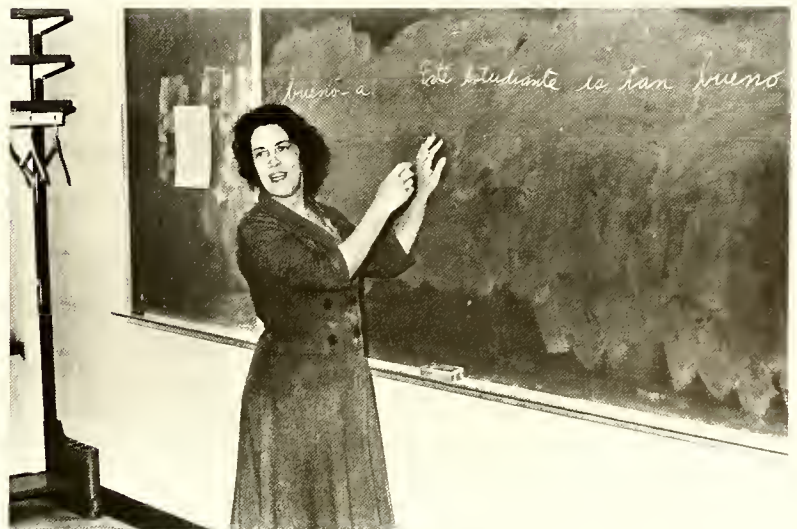 bueno-a
Este estudiante is tan bueno